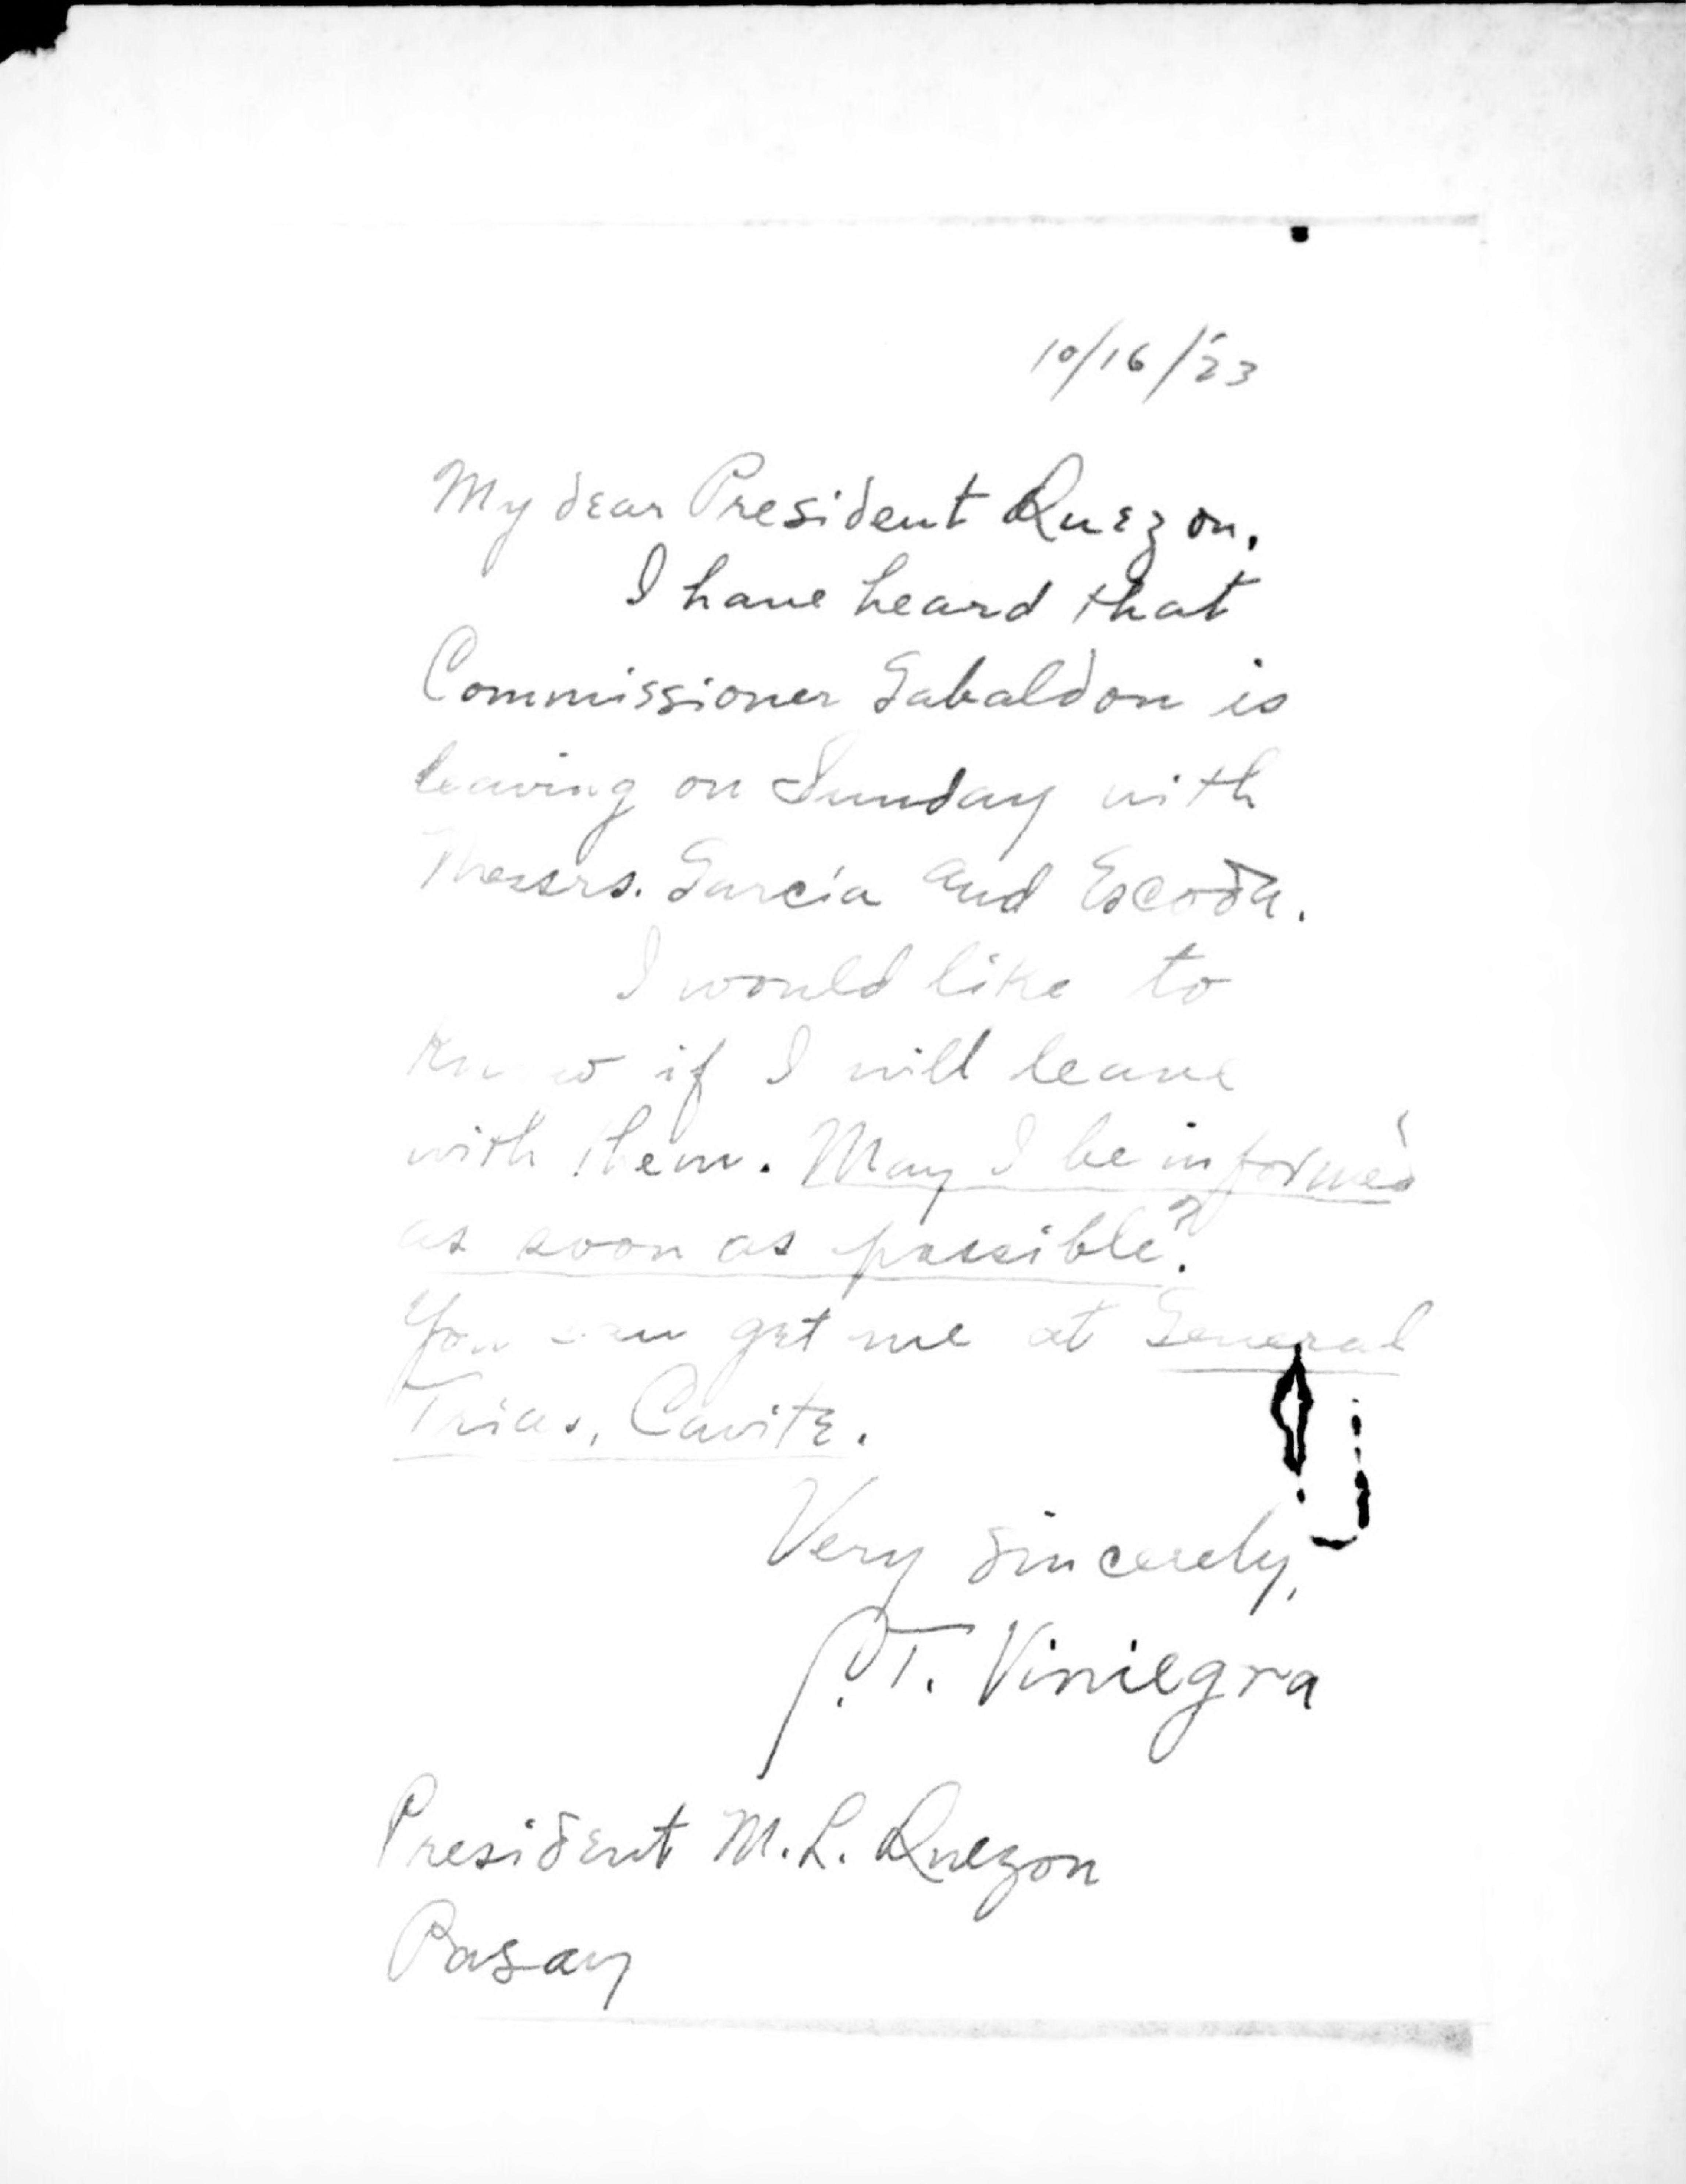 10/16/'23
My dear President Quezon.
I have heard that
Commissioner Gabaldon is
leaving on Sunday with
Messrs. Garcia and Escoda.
I would like to
know if I will leave
with them. May I be informed
as soon as possible?
You can get me at General
Trias, Cavite.
Very sincerely,
P.T. Viniegra
President M.L. Quezon
Pasay